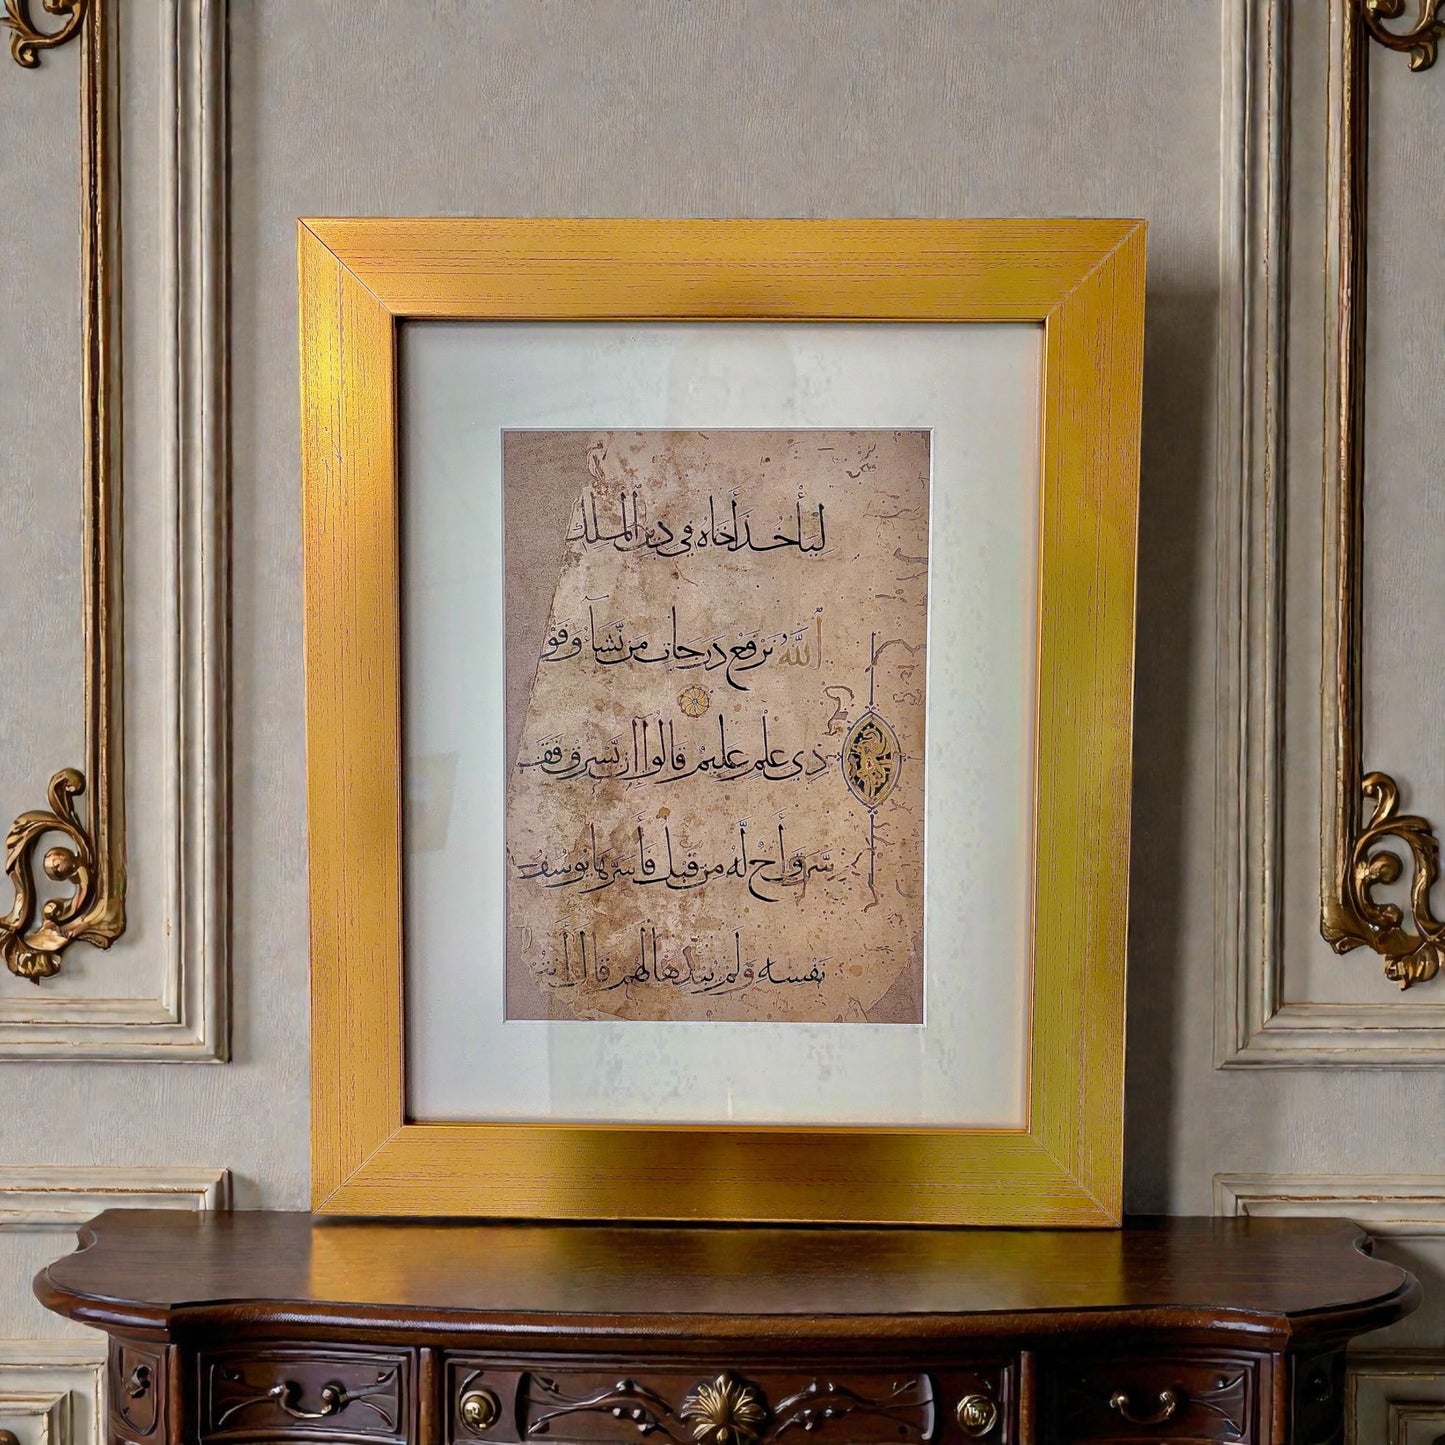 لِيَأْخُذَ أَخَاهُ فِي دِينِ الْمَلِكِ
اللَّهُ نَرْفَعُ دَرَجَاتٍ مَّن نَّشَآءُ وَفَوْ
ذِي عِلْمٍ عَلِيمٌ قَالُوٓا إِن يَسْرِقْ فَقَدْ
سَرَقَ أَخٌ لَّهُ مِن قَبْلُ فَأَسَرَّهَا يُوسُفُ
نَفْسِهِ وَلَمْ يُبْدِهَا لَهُمْ قَالَ أَنتُمْ